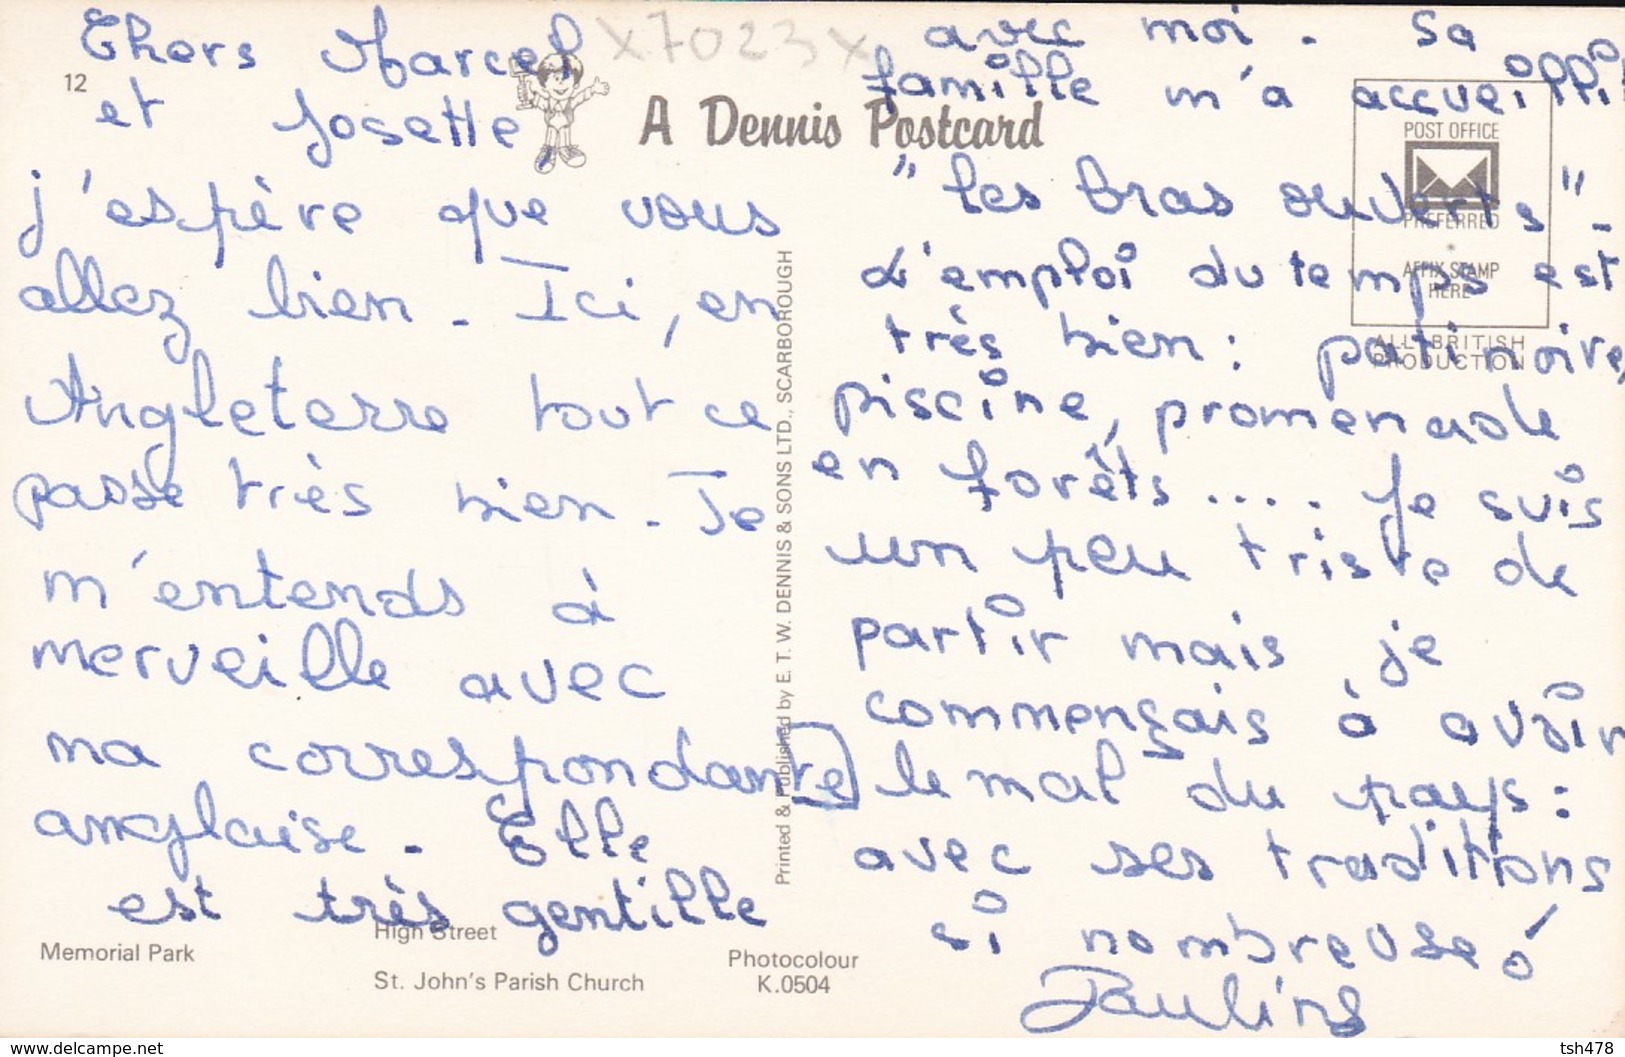 Chers Marcel
et Josette,
j'espère que vous
allez bien - Ici, en
Angleterre tout ce
passe très bien - Je
m'entends à
merveille avec
ma correspondante
anglaise - Elle
est très gentille
avec moi. Sa
famille m'a accueilli
"les bras ouverts" -
L'emploi du temps est
très bien : patinoire,
piscine, promenade
en forêts .... Je suis
un peu triste de
partir mais je
commençais à avoir
le mal du pays :
avec ses traditions
si nombreuses
Pauline
X7023X
12
A Dennis Postcard
POST OFFICE
PREFERRED
AFFIX STAMP
HERE
ALL BRITISH
PRODUCTION
Printed & Published by E. T. W. DENNIS & SONS LTD., SCARBOROUGH
Memorial Park
High Street
St. John's Parish Church
Photocolour
K.0504
www.delcampe.net
tsh478